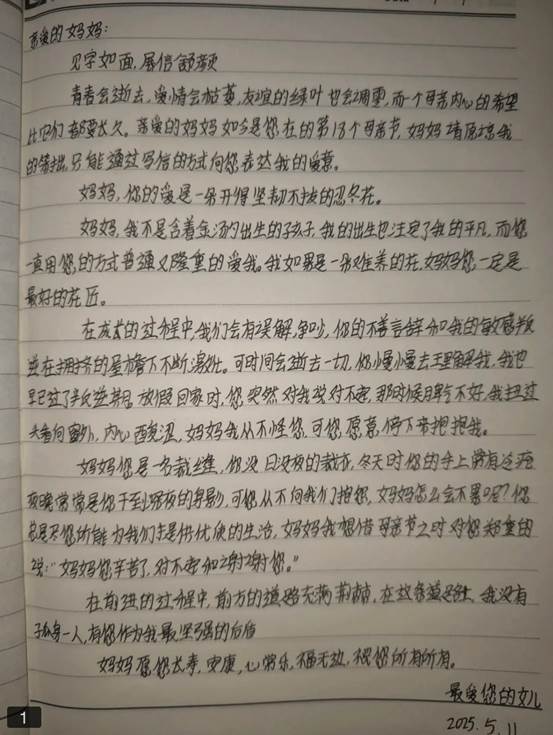 亲爱的妈妈:
见字如面,展信舒颜
青春会逝去,爱情会枯萎,友谊的绿叶也会凋零,而一个母亲内心的希望
比它们都要长久。亲爱的妈妈如今是您在的第18个母亲节,妈妈请原谅我
的笨拙,只能通过写信的方式向您表达我的爱意。
妈妈,你的爱是一朵开得坚韧不拔的忍冬花。
妈妈,我不是含着金汤的出生的孩子,我的出生也注定了我的平凡,而您
一直用您的方式普通又隆重的爱我。我如果是一朵难养的花,妈妈您一定是
最好的花匠。
在成长的过程中,我们会有误解,争吵,你的不善言辞和我的敏感叛
逆在拥挤的屋檐下不断激化。可时间会逝去一切,你慢慢去理解我,我也
早已过了叛逆期,放假回家时,您突然对我说对不起,那时候脾气不好,我扭过
头看向窗外,内心酸涩,妈妈我从不怪您,可您愿意俯下身抱抱我。
妈妈您是一名裁缝,你没日没夜的裁衣,冬天时您的手上常有冻疮
夜晚常常是您干到深夜的身影,可您从不向我们抱怨,妈妈怎么会不累呢?您
总是尽您所能为我们提供优质的生活,妈妈我想借母亲节之时对您郑重的
说:“妈妈您辛苦了,对不起和谢谢您。”
在前进的过程中,前方的道路充满荆棘,在这条道路上,我没有
孑身一人,有您作为我最坚强的后盾
妈妈愿您长寿,安康,心常乐,福无边,祝您所有所有。
最爱您的女儿
2025.5.11
1